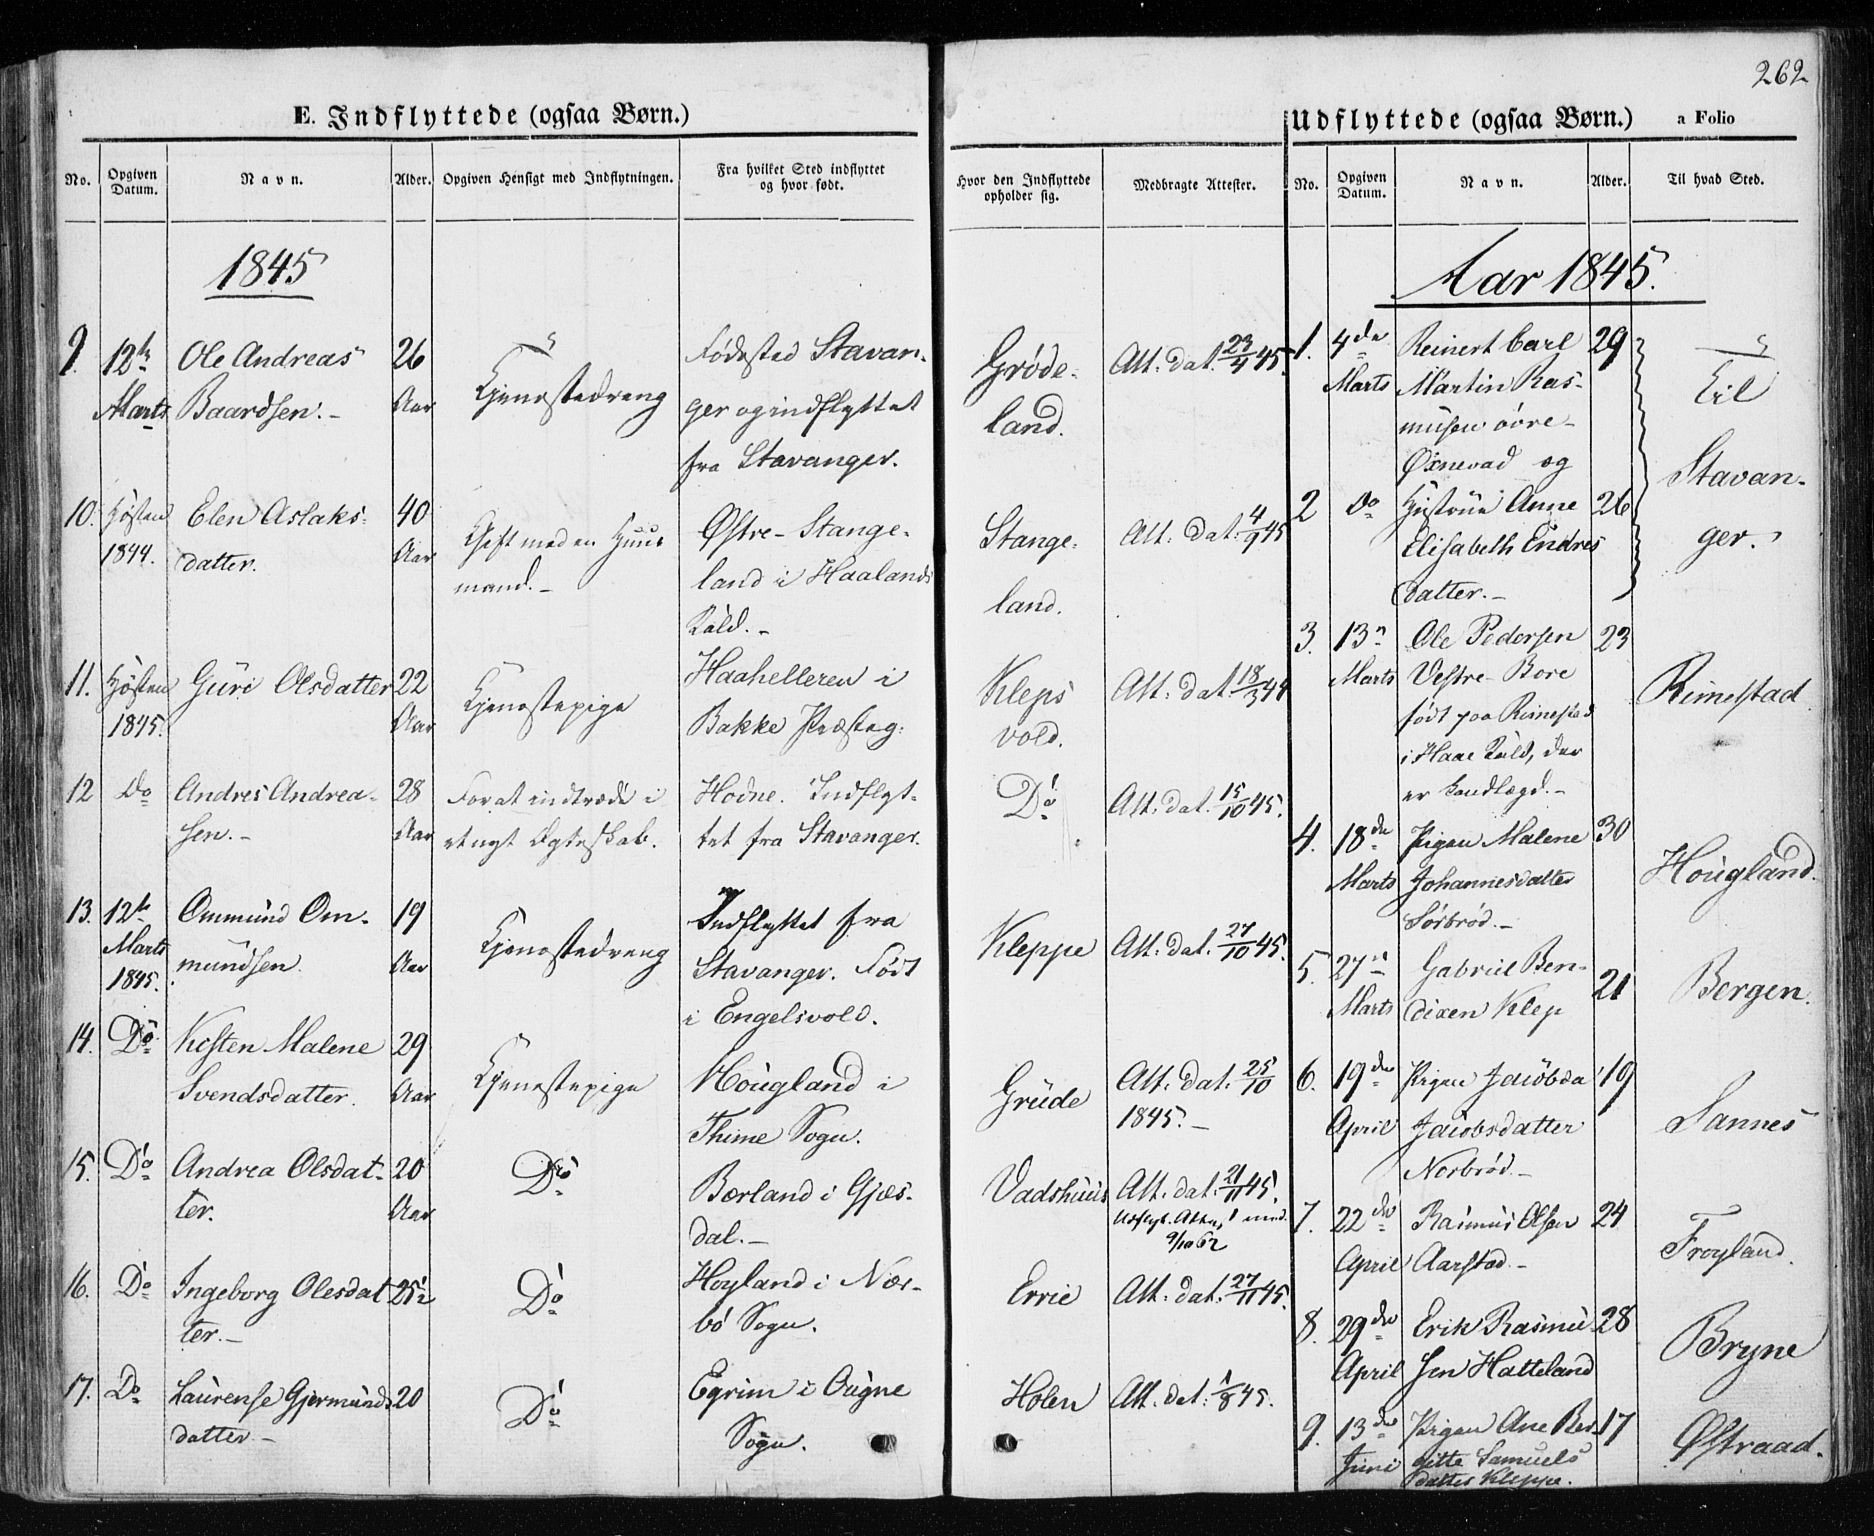 262
E. Indflyttede (ogsaa Børn.)
No.
Opgiven
Datum.
Navn.
Alder.
Opgiven Hensigt med Indflytningen.
Fra hvilket Sted indflyttet
og hvor født.
Hvor den Indflyttede
opholder sig.
Medbragte Attester.
1845
9.
12te
Marts
Ole Andreas
Baardsen.-
26
Aar
Tjenestedreng
Fødested Stavan-
ger og indflyttet
fra Stavanger.
Grøde-
land.
Att. dat. 23/4 45.
10.
Høsten
1844.
Elen Aslaks-
datter.
40
Aar
Gift med en Huus
mand.-
Østre-Stange-
land i Haalands
Kald.-
Stange-
land.
Att. dat. 4/9 45
11.
Høsten
1845.
Guri Olsdatter
22
Aar
Tjenestepige
Haahelleren i
Bakke Præsteg:
Kleps
vold.
Att. dat. 18/3 44
12
Do
Andres Andrea-
sen.-
28
Aar
For at indtræde i
et nyt Ægteskab.
Hodne. Indflyt-
tet fra Stavanger.
Do
Att. dat. 15/10 45.
13.
12te
Marts
1845.
Ommund Om-
mundsen.
19
Aar
Tjenestedreng
Indflyttet fra
Stavanger. Født
i Engelsvold.
Kleppe
Att. dat. 27/10 45.
14.
Do
Kisten Malene
Svendsdatter.
29
Aar
Tjenestepige
Hougland i
Thime Sogn.
Grude
Att. dat. 25/10
1845.-
15.
Do
Andrea Olsdat-
ter.
20
Aar
Do
Børland i Gjes-
dal.-
Vadshuus
Att. dat. 21/11 45.
9/10 62
16.
Do
Ingeborg Olesdat
ter.-
25½
Do
Hoyland i Nær-
bö Sogn.
Errie
Att. dat. 27/11 45.
17.
Do
Laurense Gjermunds
datter-
20
Do
Egrim i Ougne
Sogn.
Holen
Att. dat. 1/8 45.
Udflyttede (ogsaa Børn.) a Folio
No.
Opgiven
Datum.
Navn.
Alder.
Til hvad Sted.
Aar 1845.
1.
4de
Marts
Reinert Carl
Martin Ras-
musen övre-
Öxnevad og
29
Til
Stavan-
ger.
2
Do
Hustrue Anne
Elisabeth Endres
datter.-
26
3.
13n
Marts
Ole Pedersen
Vestre-Bore
født paa Rimestad
i Haae Kald, der
er Landlægd.-
23
Rimestad
4.
18de
Marts
Pigen Malene
Johannesdatter
Sørbrød.-
30
Hougland.
5.
27n
Marts
Gabriel Ben-
dixen Klep
21
Bergen.
6.
19de
April
Pigen Jacobea
Jacobsdatter
Norbrød.-
19
Sannes
7.
22de
April
Rasmus Olsen
Aarstad.-
24
Froyland.
8.
29de
April
Erik Rasmu
sen Hatteland
28
Bryne
9.
13de
Juni
Pigen Ane Ber
gitte Samuels
datter Kleppe.
17
Østraad.